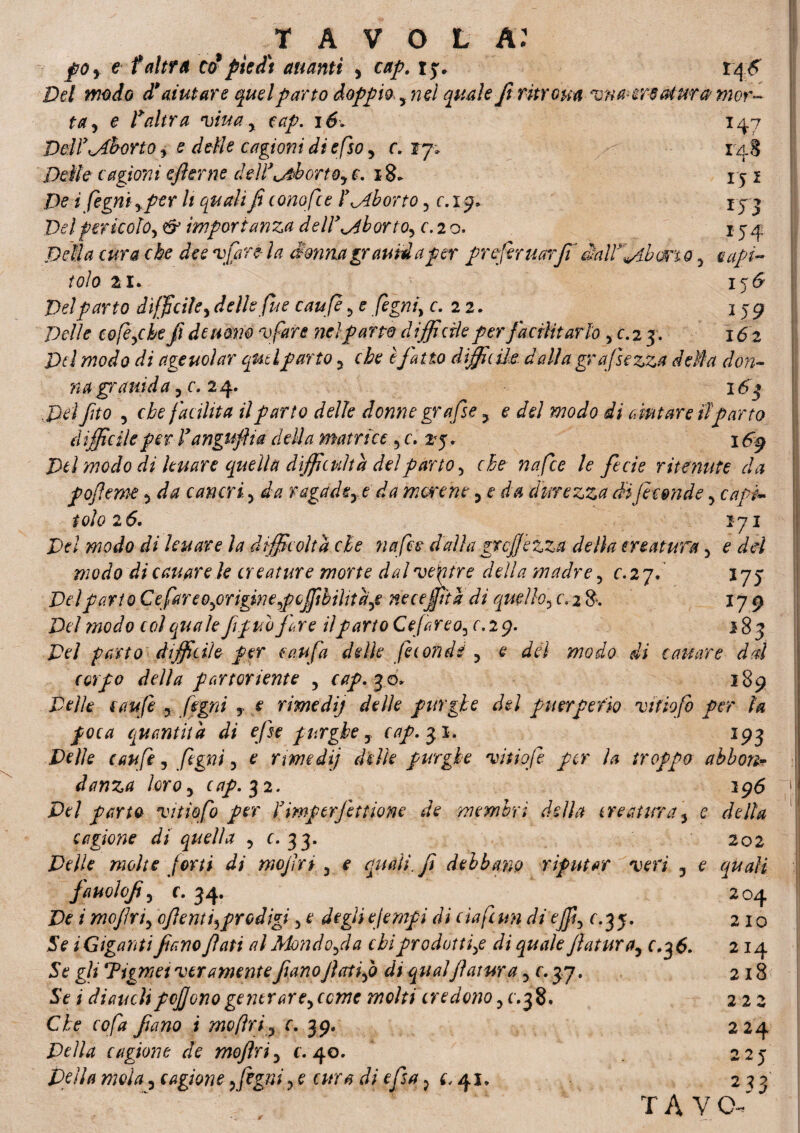 TAVOLA:
po, e l'altra co' piedi auanti, cap. 15. 146
Del modo d'aiutare quel parto doppio, nel quale si ritroua vna creatura mor-
ta, e l'altra viua, cap. 16. 147
Dell'Aborto, e delle cagioni di esso, c. 17. 148
Delle cagioni esterne dell'Aborto, c. 18. 151
De i segni, per li quali si conosce l'Aborto, c. 19. 153
Del pericolo, & importanza dell'Aborto, c. 20. 154
Della cura che dee vsare la donna grauida per preseruarsi dall'Aborto, capi-
tolo 21. 156
Del parto difficile, delle sue cause, e segni, c. 22. 159
Delle cose, che si deuono vsare nel parto difficile per facilitarlo, c. 23. 162
Del modo di ageuolar quel parto, che è fatto difficile dalla grassezza della don-
na grauida, c. 24. 163
Del sito, che facilita il parto delle donne grasse, e del modo di aiutare il parto
difficile per l'angustia della matrice, c. 25. 169
Del modo di leuare quella difficultà del parto, che nasce le fecie ritenute da
posteme, da cancri, da ragade, e da morene, e da durezza di seconde, capi-
tolo 26. 171
Del modo di leuare la difficoltà che nasce dalla grossezza della creatura, e del
modo di cauare le creature morte dal ventre della madre, c. 27. 175
Del parto Cesareo, origine, possibilità, e necessità di quello, c. 28. 179
Del modo col quale si può fare il parto Cesareo, c. 29. 183
Del parto difficile per causa delle seconde, e del modo di cauare dal
corpo della partoriente, cap. 30. 189
Delle cause, segni, e rimedij delle purghe del puerperio vitioso per la
poca quantità di esse purghe, cap. 31. 193
Delle cause, segni, e rimedij delle purghe vitiose per la troppo abbon-
danza loro, cap. 32. 196
Del parto vitioso per l'imperfettione de membri della creatura, e della
cagione di quella, c. 33. 202
Delle molte sorti di mostri, e quali si debbano riputar veri, e quali
fauolosi, c. 34. 204
De i mostri, ostenti, prodigi, e degli esempi di ciascun di essi, c. 35. 210
Se i Giganti siano stati al Mondo, da chi prodotti, e di quale statura, c. 36. 214
Se gli Pigmei veramente siano stati, ò di qual statura, c. 37. 218
Se i diauoli possono generare, come molti credono, c. 38. 222
Che cosa siano i mostri, c. 39. 224
Della cagione de mostri, c. 40. 225
Della mola, cagione, segni, e cura di essa, c. 41. 233
TAVO-